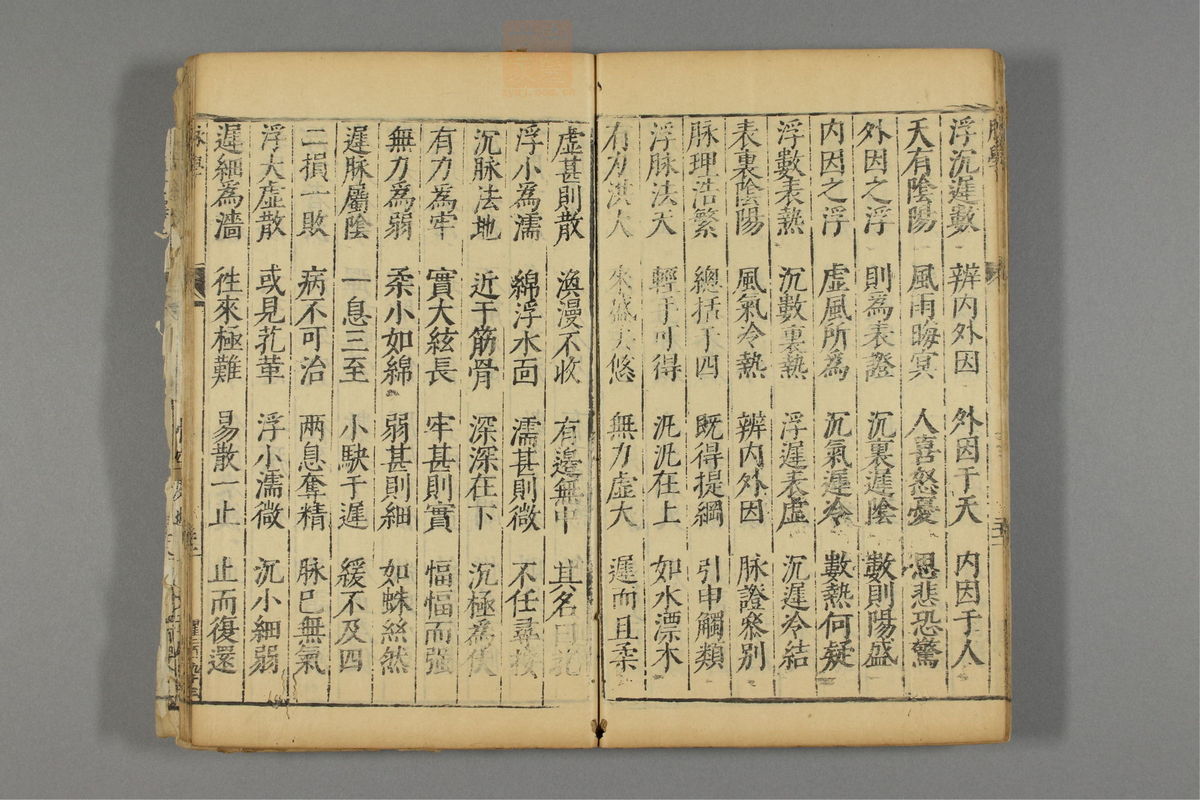 浮沉遲數　辨內外因　外因于天　內因于人
天有陰陽　風雨晦冥　人喜怒憂　思悲恐驚
外因之浮　則為表證　沉裏遲陰　數則陽盛
內因之浮　虛風所為　沉氣遲冷　數熱何疑
浮數表熱　沉數裏熱　浮遲表虛　沉遲冷結
表裏陰陽　風氣冷熱　辨內外因　脉證參別
脉理浩繁　總括于四　既得提綱　引申觸類
浮脉法天　輕手可得　汎汎在上　如水漂木
有力洪大　來盛去悠　無力虛大　遲而且柔
虛甚則散　渙漫不收　有邊無中　其名曰芤
浮小為濡　綿浮水面　濡甚則微　不任尋按
沉脉法地　近于筋骨　深深在下　沉極為伏
有力為牢　實大絃長　牢甚則實　愊愊而強
無力為弱　柔小如綿　弱甚則細　如蛛絲然
遲脉屬陰　一息三至　小駃于遲　緩不及四
二損一敗　病不可治　兩息奪精　脉已無氣
浮大虛散　或見芤革　浮小濡微　沉小細弱
遲細為濇　徃來極難　易散一止　止而復還